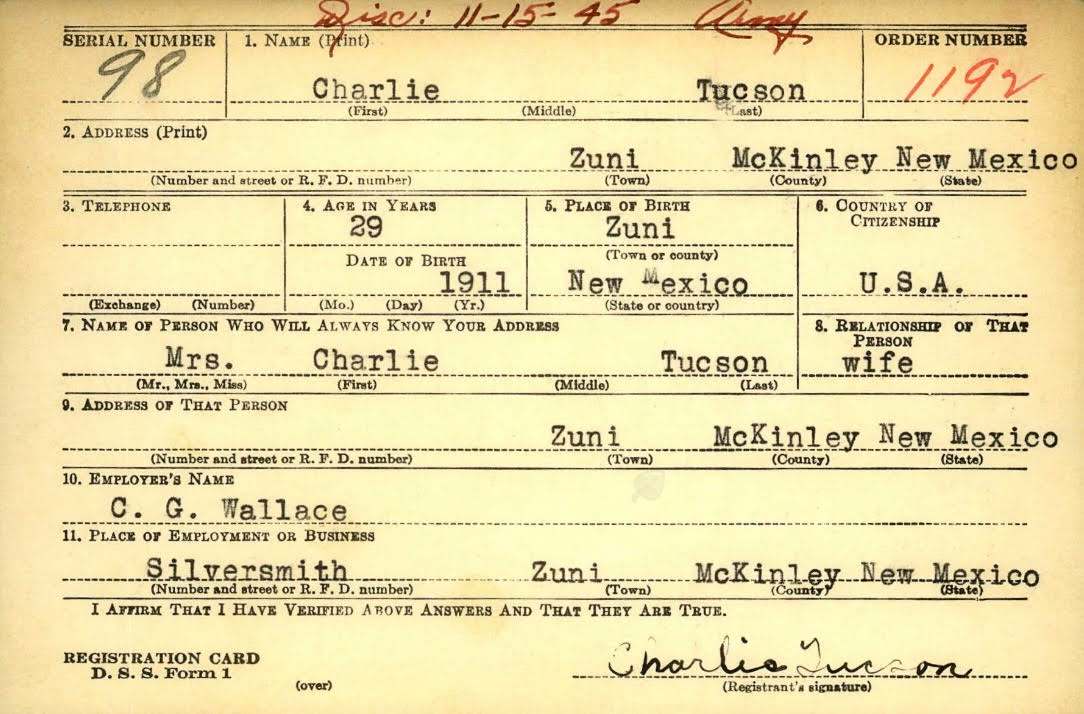 Disc: 11-15-45 Army
SERIAL NUMBER 1. NAME (Print) ORDER NUMBER
98 Charlie Tucson 1192
(First) (Middle) (Last)
2. ADDRESS (Print)
Zuni McKinley New Mexico
(Number and street or R. F. D. number) (Town) (County) (State)
3. TELEPHONE 4. AGE IN YEARS 5. PLACE OF BIRTH 6. COUNTRY OF CITIZENSHIP
29 Zuni
DATE OF BIRTH (Town or county)
1911 New Mexico U.S.A.
(Exchange) (Number) (Mo.) (Day) (Yr.) (State or country)
7. NAME OF PERSON WHO WILL ALWAYS KNOW YOUR ADDRESS 8. RELATIONSHIP OF THAT PERSON
Mrs. Charlie Tucson wife
(Mr., Mrs., Miss) (First) (Middle) (Last)
9. ADDRESS OF THAT PERSON
Zuni McKinley New Mexico
(Number and street or R. F. D. number) (Town) (County) (State)
10. EMPLOYER'S NAME
C. G. Wallace
11. PLACE OF EMPLOYMENT OR BUSINESS
Silversmith Zuni McKinley New Mexico
(Number and street or R. F. D. number) (Town) (County) (State)
I AFFIRM THAT I HAVE VERIFIED ABOVE ANSWERS AND THAT THEY ARE TRUE.
REGISTRATION CARD
D. S. S. Form 1 Charlie Tucson
(over) (Registrant's signature)